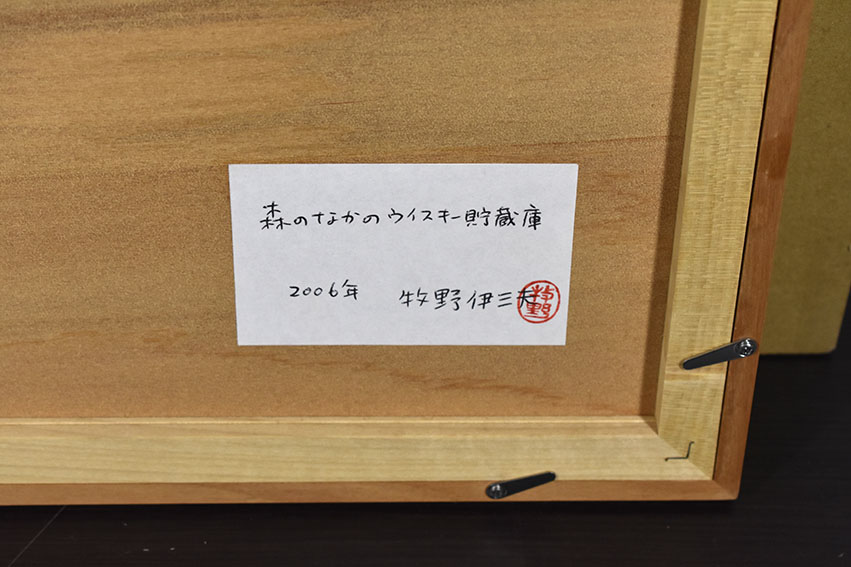 森のなかのウイスキー貯蔵庫
2006年 牧野伊三夫
牧野